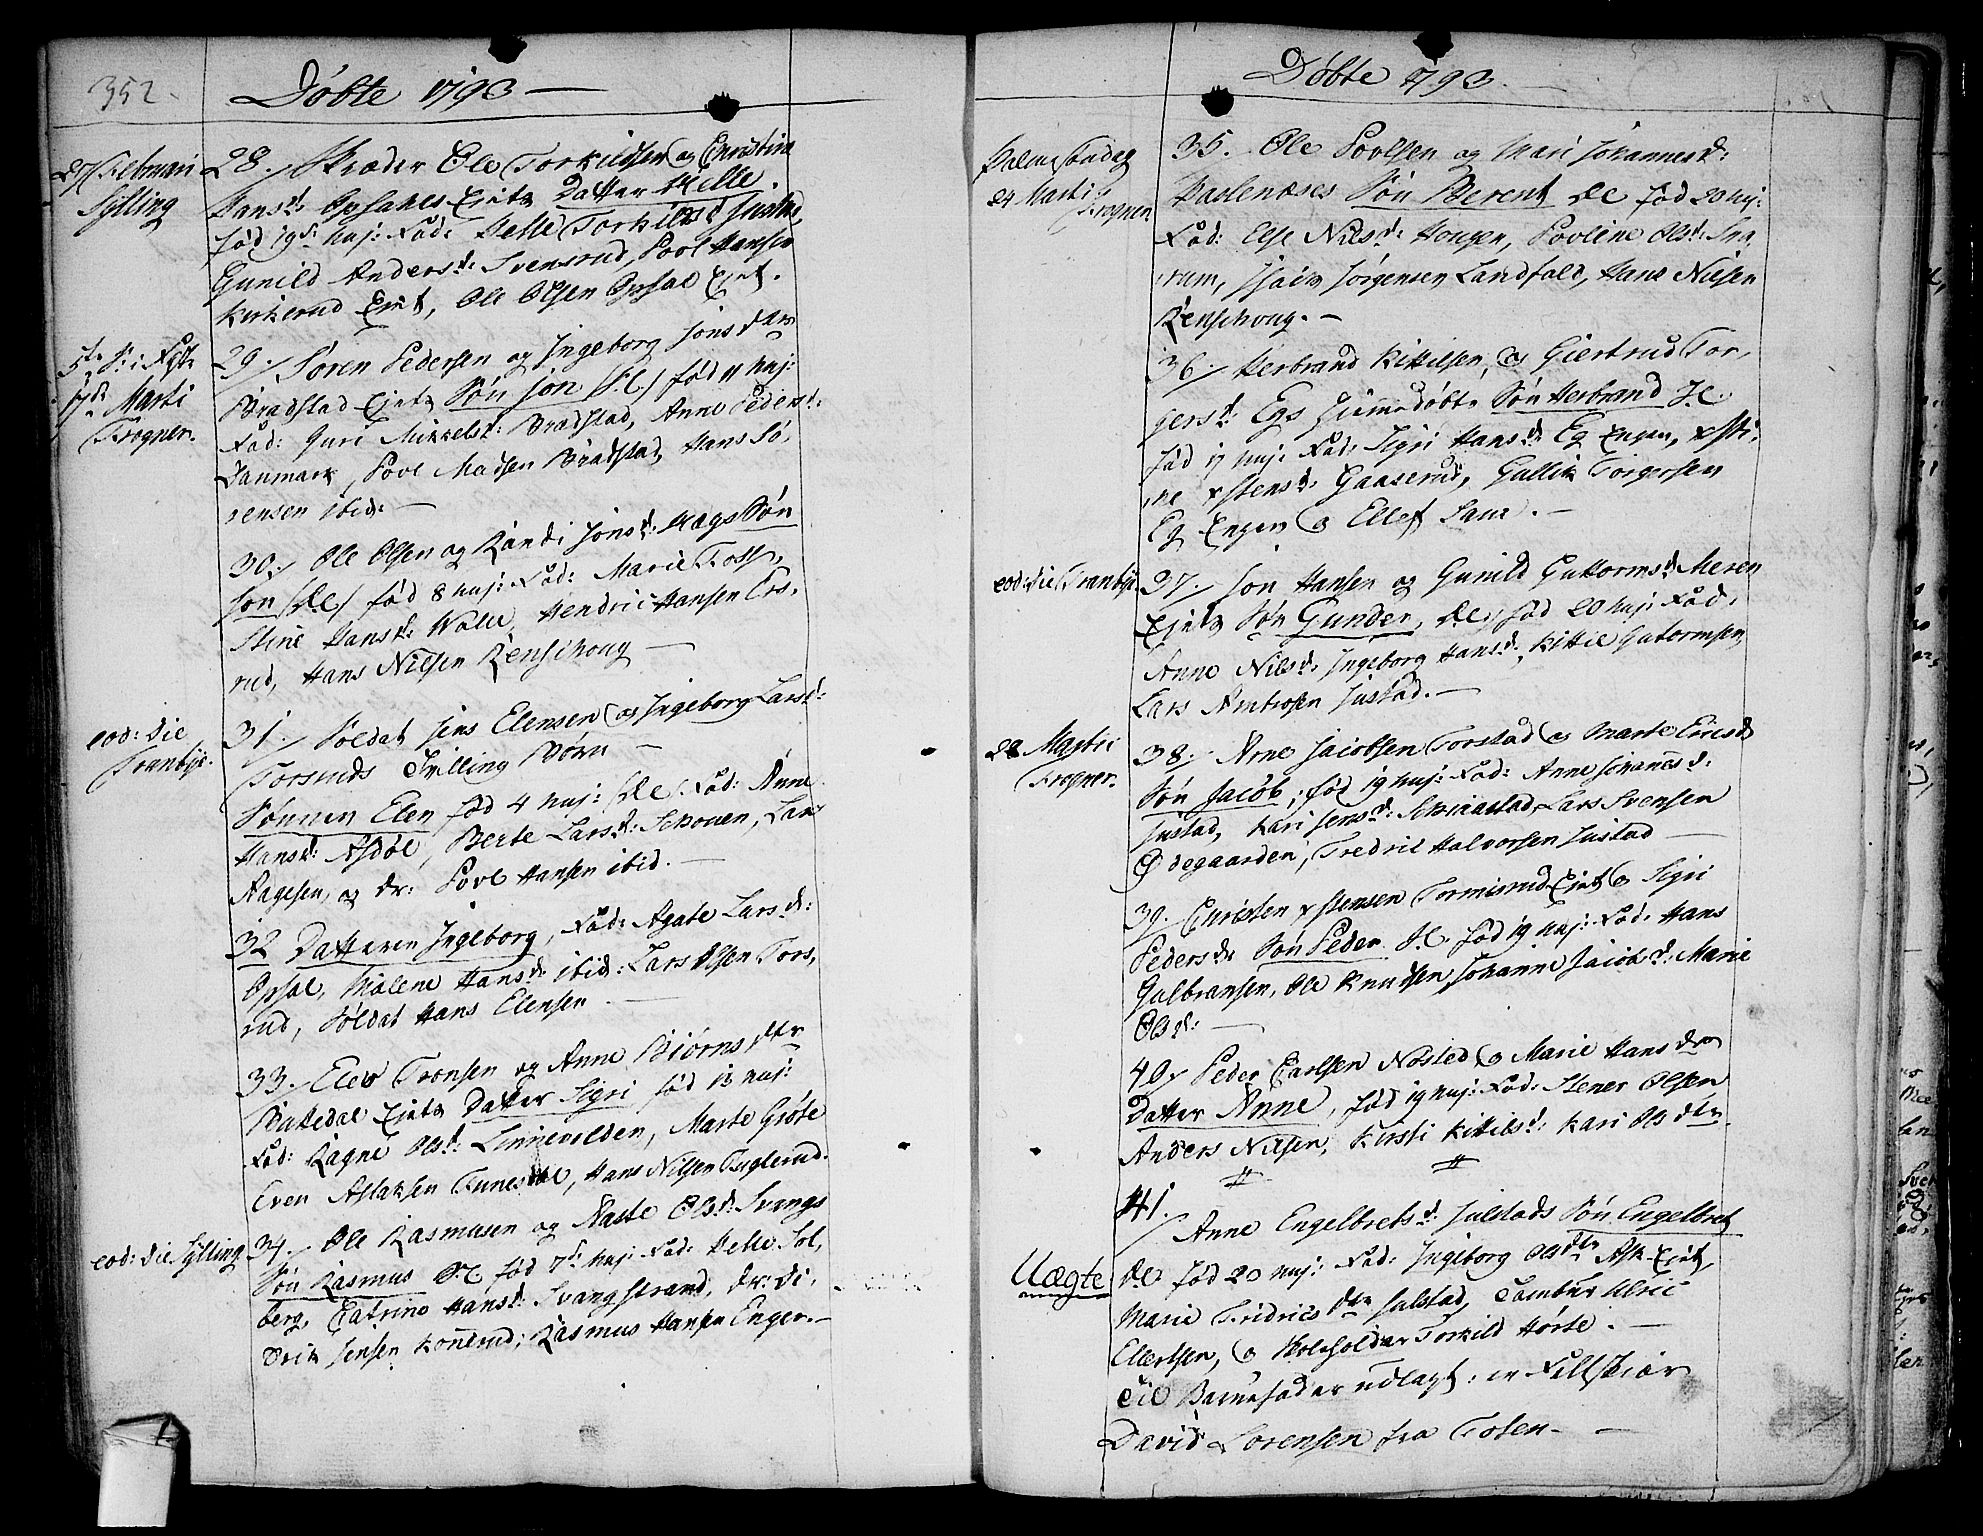 352.
Döbte 1793
27 Februari
Sylling
28. Skræder Ole Torkildsen og Christina
Hansd: Opsahls Ejets Datter Helle.
fød 19d huj: Fad: Helle Torkilsd Justad,
Gunild Andersd: Svensrud, Povl Hansen
Kirkerud Ejet, Ole Olsen Opsal Ejet.
5te S: i Fast
17de Marti
Frogner.
29. Sören Pedersen og Ingeborg Jonsdtr
Bradstad Ejets Sön Jon (H.C.) fød 11 huj:
Fad: Guri Mikkelsd: Bradstad, Anne Pedersd:
Danmark, Povl Madsen Bradstad, Hans Sö,
rensen ibid:
30. Ole Olsen og Randi Jonsd: Hægs Sön
Jon (H.C.) fød 8 huj: Fad: Marie Foss,
Stine Hansd: Walle, Hendric Hansen Ers,
rud, Hans Nilsen Renschoug
eod: die
Tranbye.
31. Soldat Jens Elensen og Ingeborg Larsd:
Torsruds Tvilling Börn
Sönnen Elen fød 4 huj: H.C. Fad: Anne
Hansd: Asdöl, Berte Larsd: Schouen, Lars
Aagesen, og Dr: Povl Hansen ibid.
32 Datteren Ingeborg, Fad: Agate Larsd:
Opsal, Malene Hansd: ibid: Lars Olsen Tors,
rud, Soldat Hans Elensen
33. Elev Tronsen og Anne Biörnsdtr
Battedal Ejets Datter Sigri fød 13 huj:
Fad: Ragne Olsd: Linnevolden, Marte Gröte
Even Aslaksen Tunesdal, Hans Nilsen Fuglerud.
eod: die Sylling
34. Ole Rasmusen og Aaste Olsd: Svangs
Sön Rasmus H.C fød 7d huj: Fad: Helle Sol,
berg, Catrine Hansd: Svangstrand, Dr: Di,
drik Jensen Konerud, Rasmus Hansen Enger.
Döbte 1793.
Palme Söndag
24 Marti
Frogner
35. Ole Povlsen og Mari Johannesd:
Haslenæses Sön Berent H.C fød 20 huj:
Fad: Else Nilsd: Hougen, Povline Olsd: Fra,
rum, Isach Jörgensen Landfald, Hans Nilsen
Renschoug.
36. Herbrand Kittilsen, og Giertrud Tor,
gersd: Egs Hiemedöbte Sön Herbrand H.C.
fød 17 huj: Fad: Sigri Hansd: Eg Engen, Xsti,
ne Xstensd: Gaaserud, Gullik Torgersen
Eg Engen og Ellef Saue.
eod: die Tranbye.
37. Jon Hansen og Gunild Guttormsd: Meren
Ejets Sön Gunder, H.C, fød 20 huj: Fad:
Anne Nilsd: Ingeborg Hansd: Kittil Gutormsen,
Lars Ambrosen Justad.
28 Martii
Frogner.
38. Arne Jacobsen Torstad og Marte Ericsd
Sön Jacob, fød 19 huj: Fad: Anne Johannesd:
Justad, Kari Jensd: Schinnestad, Lars Svensen
Ödegaarden, Fredric Halvorsen Justad
39. Christen Xstensen Tormisrud Ejet og Sigri
Pedersd: Sön Peder H.C. fød 19 huj: Fad: Hans
Gulbransen, Ole Knudsen, Johanne Jacobsd: Marie
Olsd:
40. Peder Carlsen Nösted og Marie Hansdtr
Datter Anne, fød 19 huj: Fad: Stener Olsen
Anders Nilsen, Kirsti Kittilsd: Kari Olsdtr.
Uægte
41.
Anne Engelbretsd: Julstads Sön Engelbret
H.C fød 20 huj: Fad: Ingeborg Olsdtr Ask Ejet,
Marie Fridricsdtr Julstad, Tambur Ulric
Ellertsen, og Skoleholder Torkild Hörte.
Til Barnefader udlagt: en Feltskiær
David Lorensen fra Toten